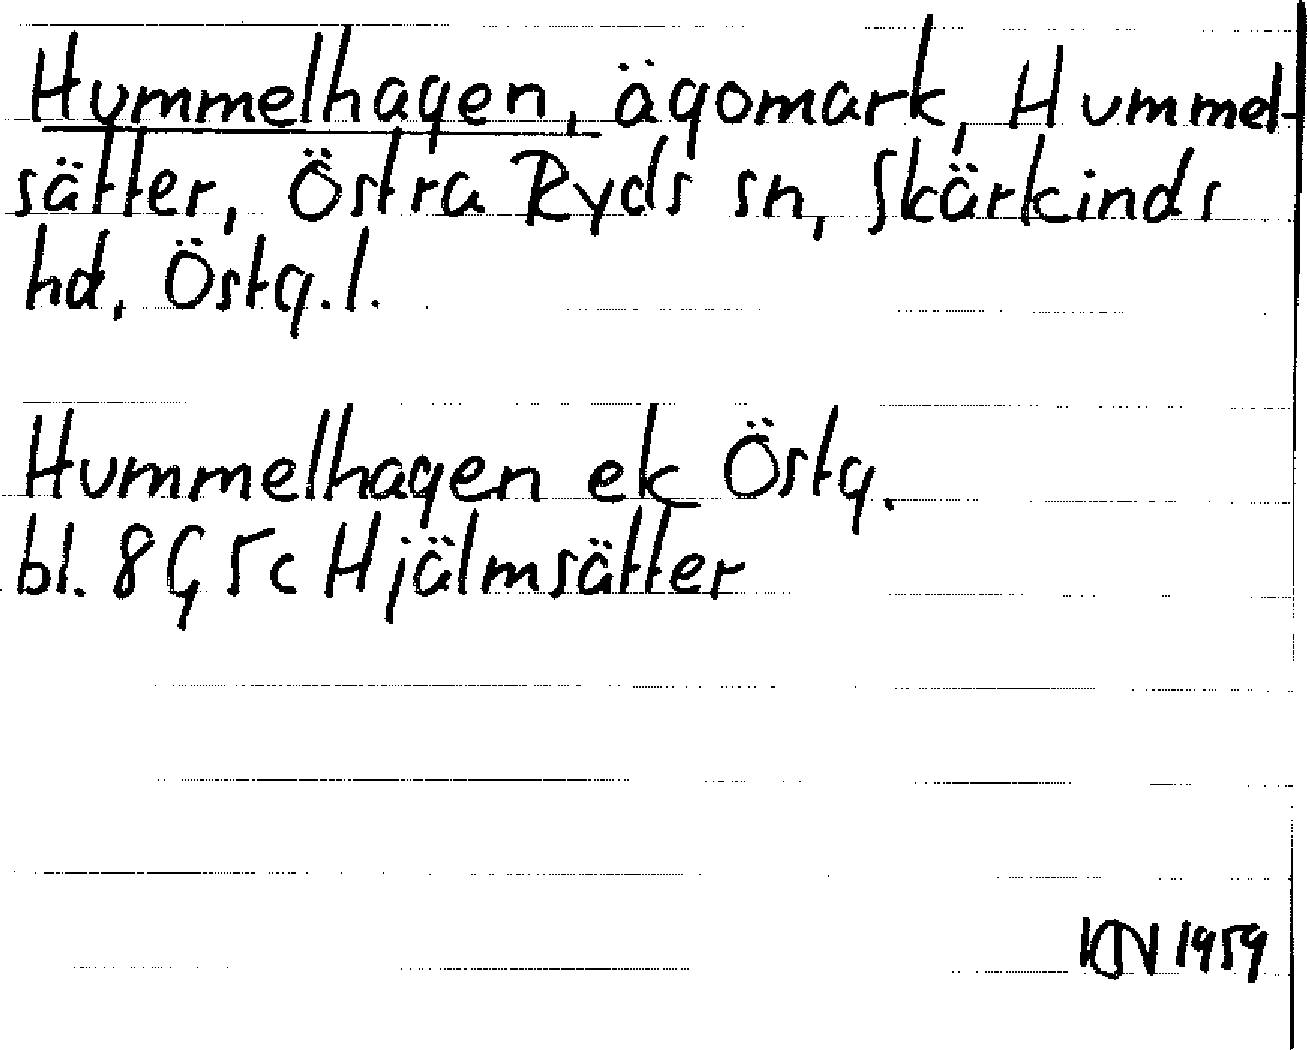 Hummelhagen, ägomark, Hummel-
sätter, Östra Ryds sn, Skärkinds
hd, Östg.l.
Hummelhagen ek Östg.
bl. 8G 5c Hjälmsätter
1959